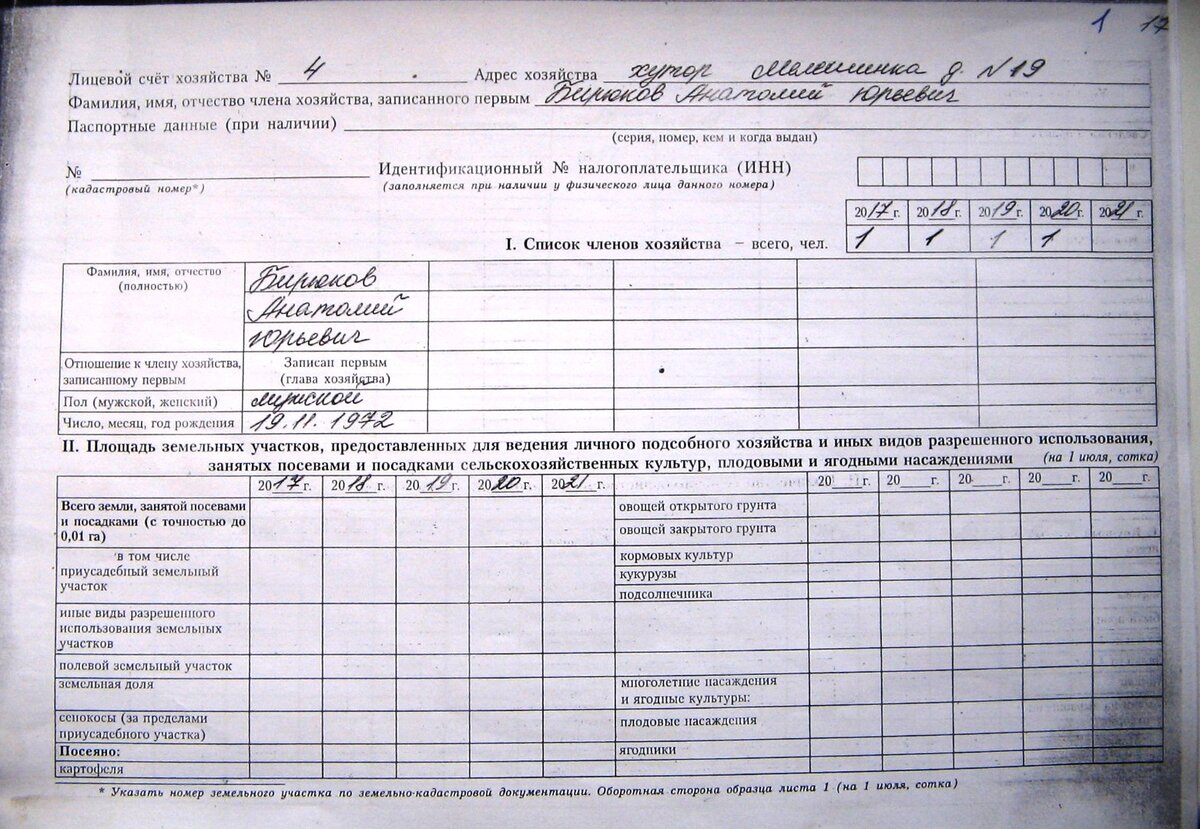 1 17
Лицевой счёт хозяйства № 4 Адрес хозяйства хутор д. №19
Фамилия, имя, отчество члена хозяйства, записанного первым Бирюков Анатолий Юрьевич
Паспортные данные (при наличии)
(серия, номер, кем и когда выдан)
№ Идентификационный № налогоплательщика (ИНН)
(кадастровый номер*) (заполняется при наличии у физического лица данного номера)
2017 г. 2018 г. 2019 г. 2020 г. 2021 г.
I. Список членов хозяйства – всего, чел. 1 1 1 1
Фамилия, имя, отчество
(полностью)
Бирюков
Анатолий
Юрьевич
Отношение к члену хозяйства,
записанному первым
Записан первым
(глава хозяйства)
Пол (мужской, женский) мужской
Число, месяц, год рождения 19.11.1972
II. Площадь земельных участков, предоставленных для ведения личного подсобного хозяйства и иных видов разрешенного использования,
занятых посевами и посадками сельскохозяйственных культур, плодовыми и ягодными насаждениями (на 1 июля, сотка)
2017 г. 2018 г. 2019 г. 2020 г. 2021 г. 20___г. 20___г. 20___г. 20___г. 20___г.
Всего земли, занятой посевами
и посадками (с точностью до
0,01 га)
в том числе
приусадебный земельный
участок
иные виды разрешенного
использования земельных
участков
полевой земельный участок
земельная доля
сенокосы (за пределами
приусадебного участка)
Посеяно:
картофеля
овощей открытого грунта
овощей закрытого грунта
кормовых культур
кукурузы
подсолнечника
многолетние насаждения
и ягодные культуры:
плодовые насаждения
ягодники
* Указать номер земельного участка по земельно-кадастровой документации. Оборотная сторона образца листа 1 (на 1 июля, сотка)